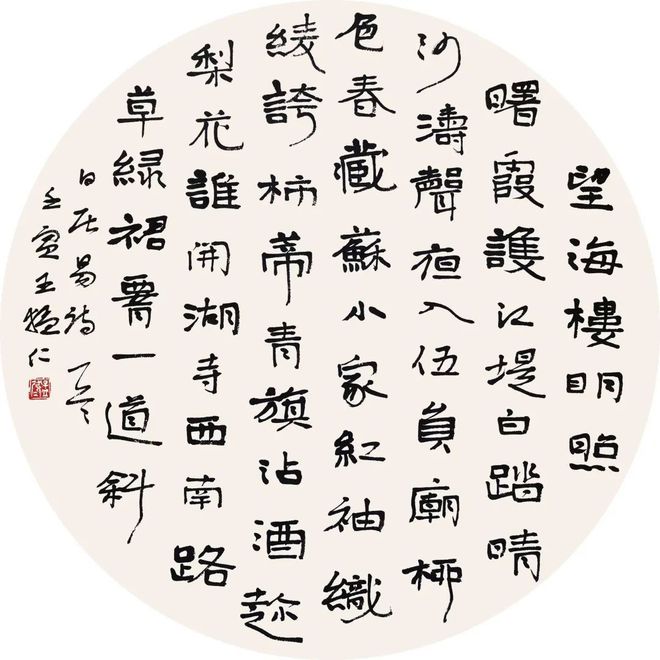 望海樓眀照
曙霞護江堤白踏晴
沙濤聲夜入伍員廟柳
色春藏蘇小家紅袖織
綾誇柿蒂青旗沽酒趂
梨花誰開湖寺西南路
草緑裙腰一道斜
白居易詩一首
壬寅王猛仁